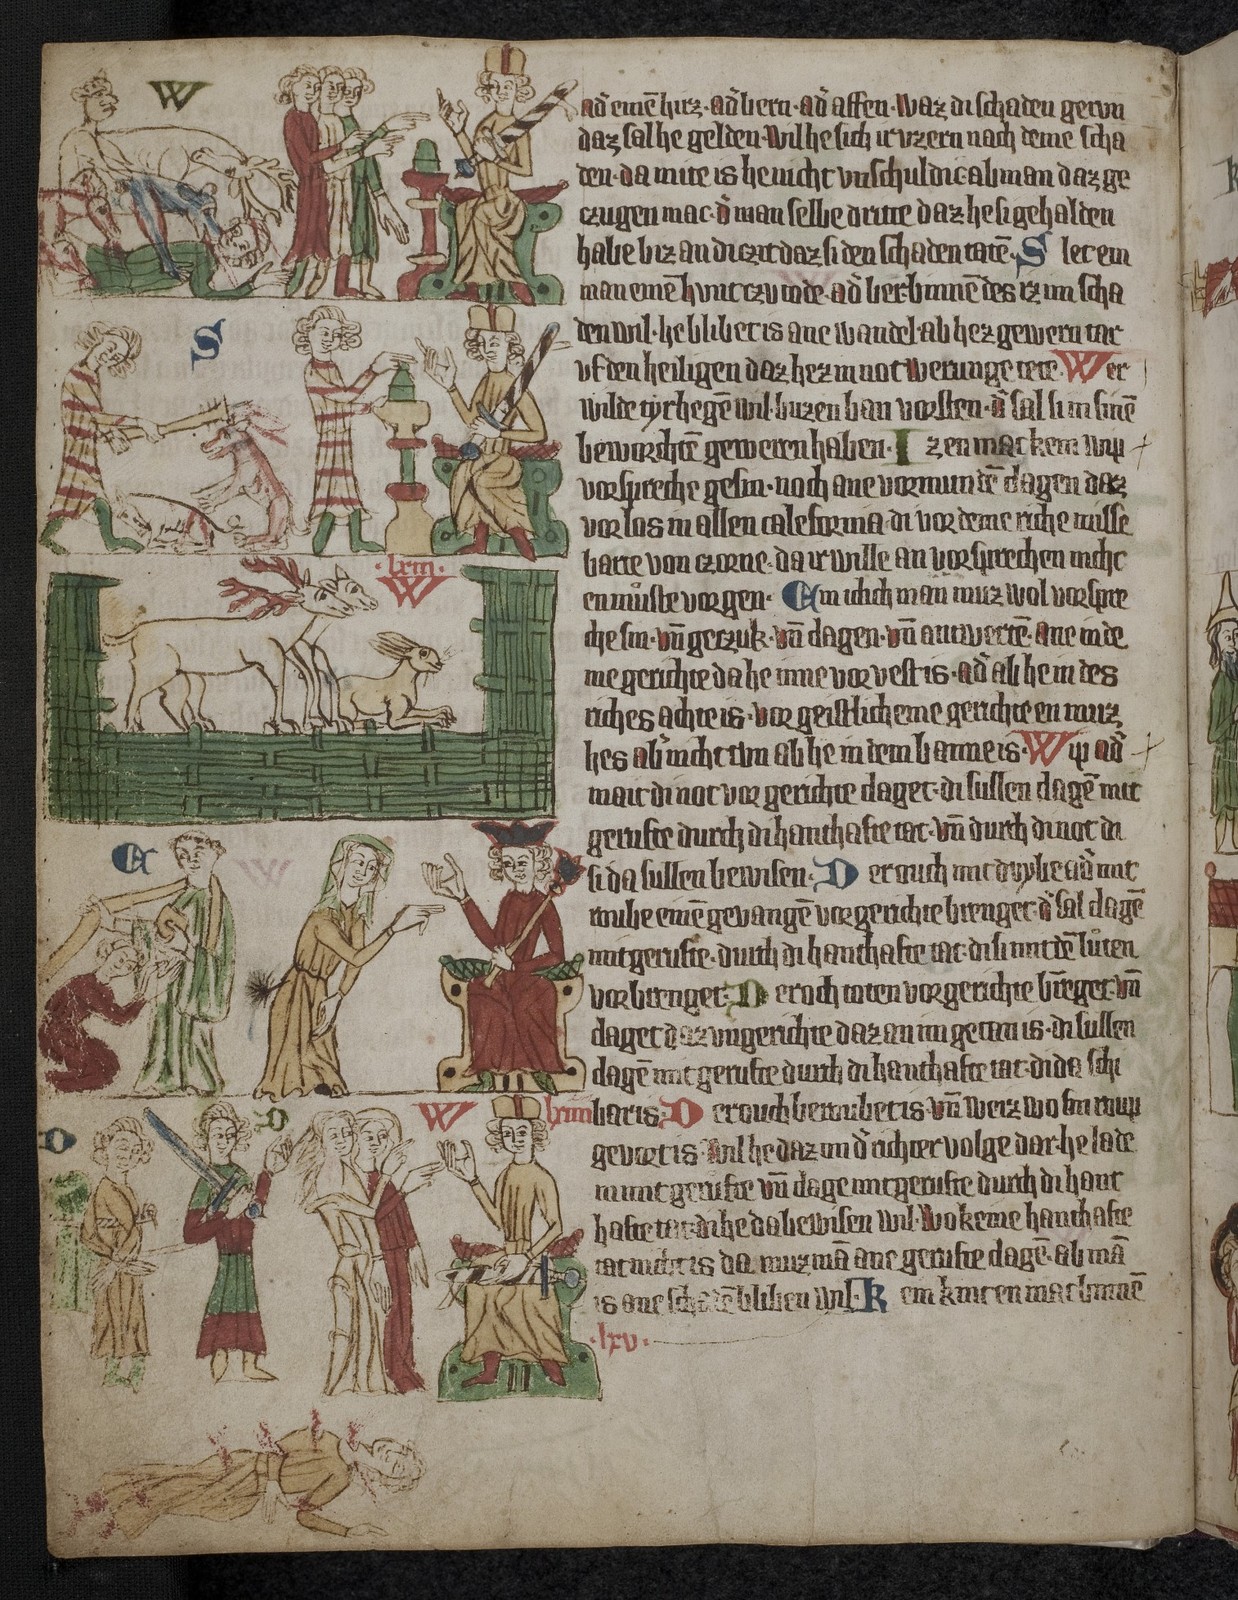 W
ad̕ einē hirz· ad̕ bern· ad̕ affen· waz di schaden gerun
daz sal he gelden· wil he sich ir vzern nach deme scha
den· da mite is he nicht vnschuldic ab man daz ge
czugen mac· d̕ man selbe dritte daz he si gehalden
habe biz an di czit daz si den schaden tatē· S let ein
man einē hunt czu tode· ad̕ ber· binnē des iz im scha
den wil· he blibet is ane wandel· ab hez gewern tar
vf den heiligen daz hez in not werunge tete· Wer
wilde tyr hegē wil· buzen ban vorsten· d̕ sal si in sinē
beworchtē geweren haben· I zen mac kein wip
vorspreche gesin· noch ane vormundē clagen daz
vorlos in allen caleforma· di vor deme riche misse
barte von czorne· da ir wille an vorsprechen nicht
en muͦste vorgen· Ein iclich man muz wol vorspre
che sin· vn̄ geczuk· vn̄ clagen· vn̄ antwertē· Ane in de
me gerichte da he inne vorvest is· ad̕ ab he in des
riches achte is· vor geistlicheme gerichte en muz
hes ab̕ nicht tun ab he in dem banne is· Wip ad̕
mait di not vor gerichte claget· di sullen clagē mit
gerufte durch di hanthafte tat· vn̄ durch di not di
si da sullen bewisen· D er ouch mit dyube ad̕ mit
roube einē gevangē vor gerichte brenget· d̕ sal clagē
mit gerufte· durch di hanthafte tat· di si mit dē luͤten
vorbrenget· D er och toten vor gerichte brēget· vn̄
claget daz vngerichte daz an im getan is· di sullen
clagē mit gerufte durch di hanthafte tat· di da schi
bar is· D er ouch beroubet is· vn̄ weiz wo sin roup
gevort is· wil he daz im d̕ richter volge dar· he lade
in mit gerufte vn̄ clage mit gerufte durch di hant
hafte tat· di he da bewisen wil· Wo keine hanthafte
tat nicht is da muz mā ane gerufte clagē· ab mā
is ane schadē bliben wil· K ein kint en mac binnē
·lxv·
S
·lxiii·
W
E
W
D
D
W
lxiiii